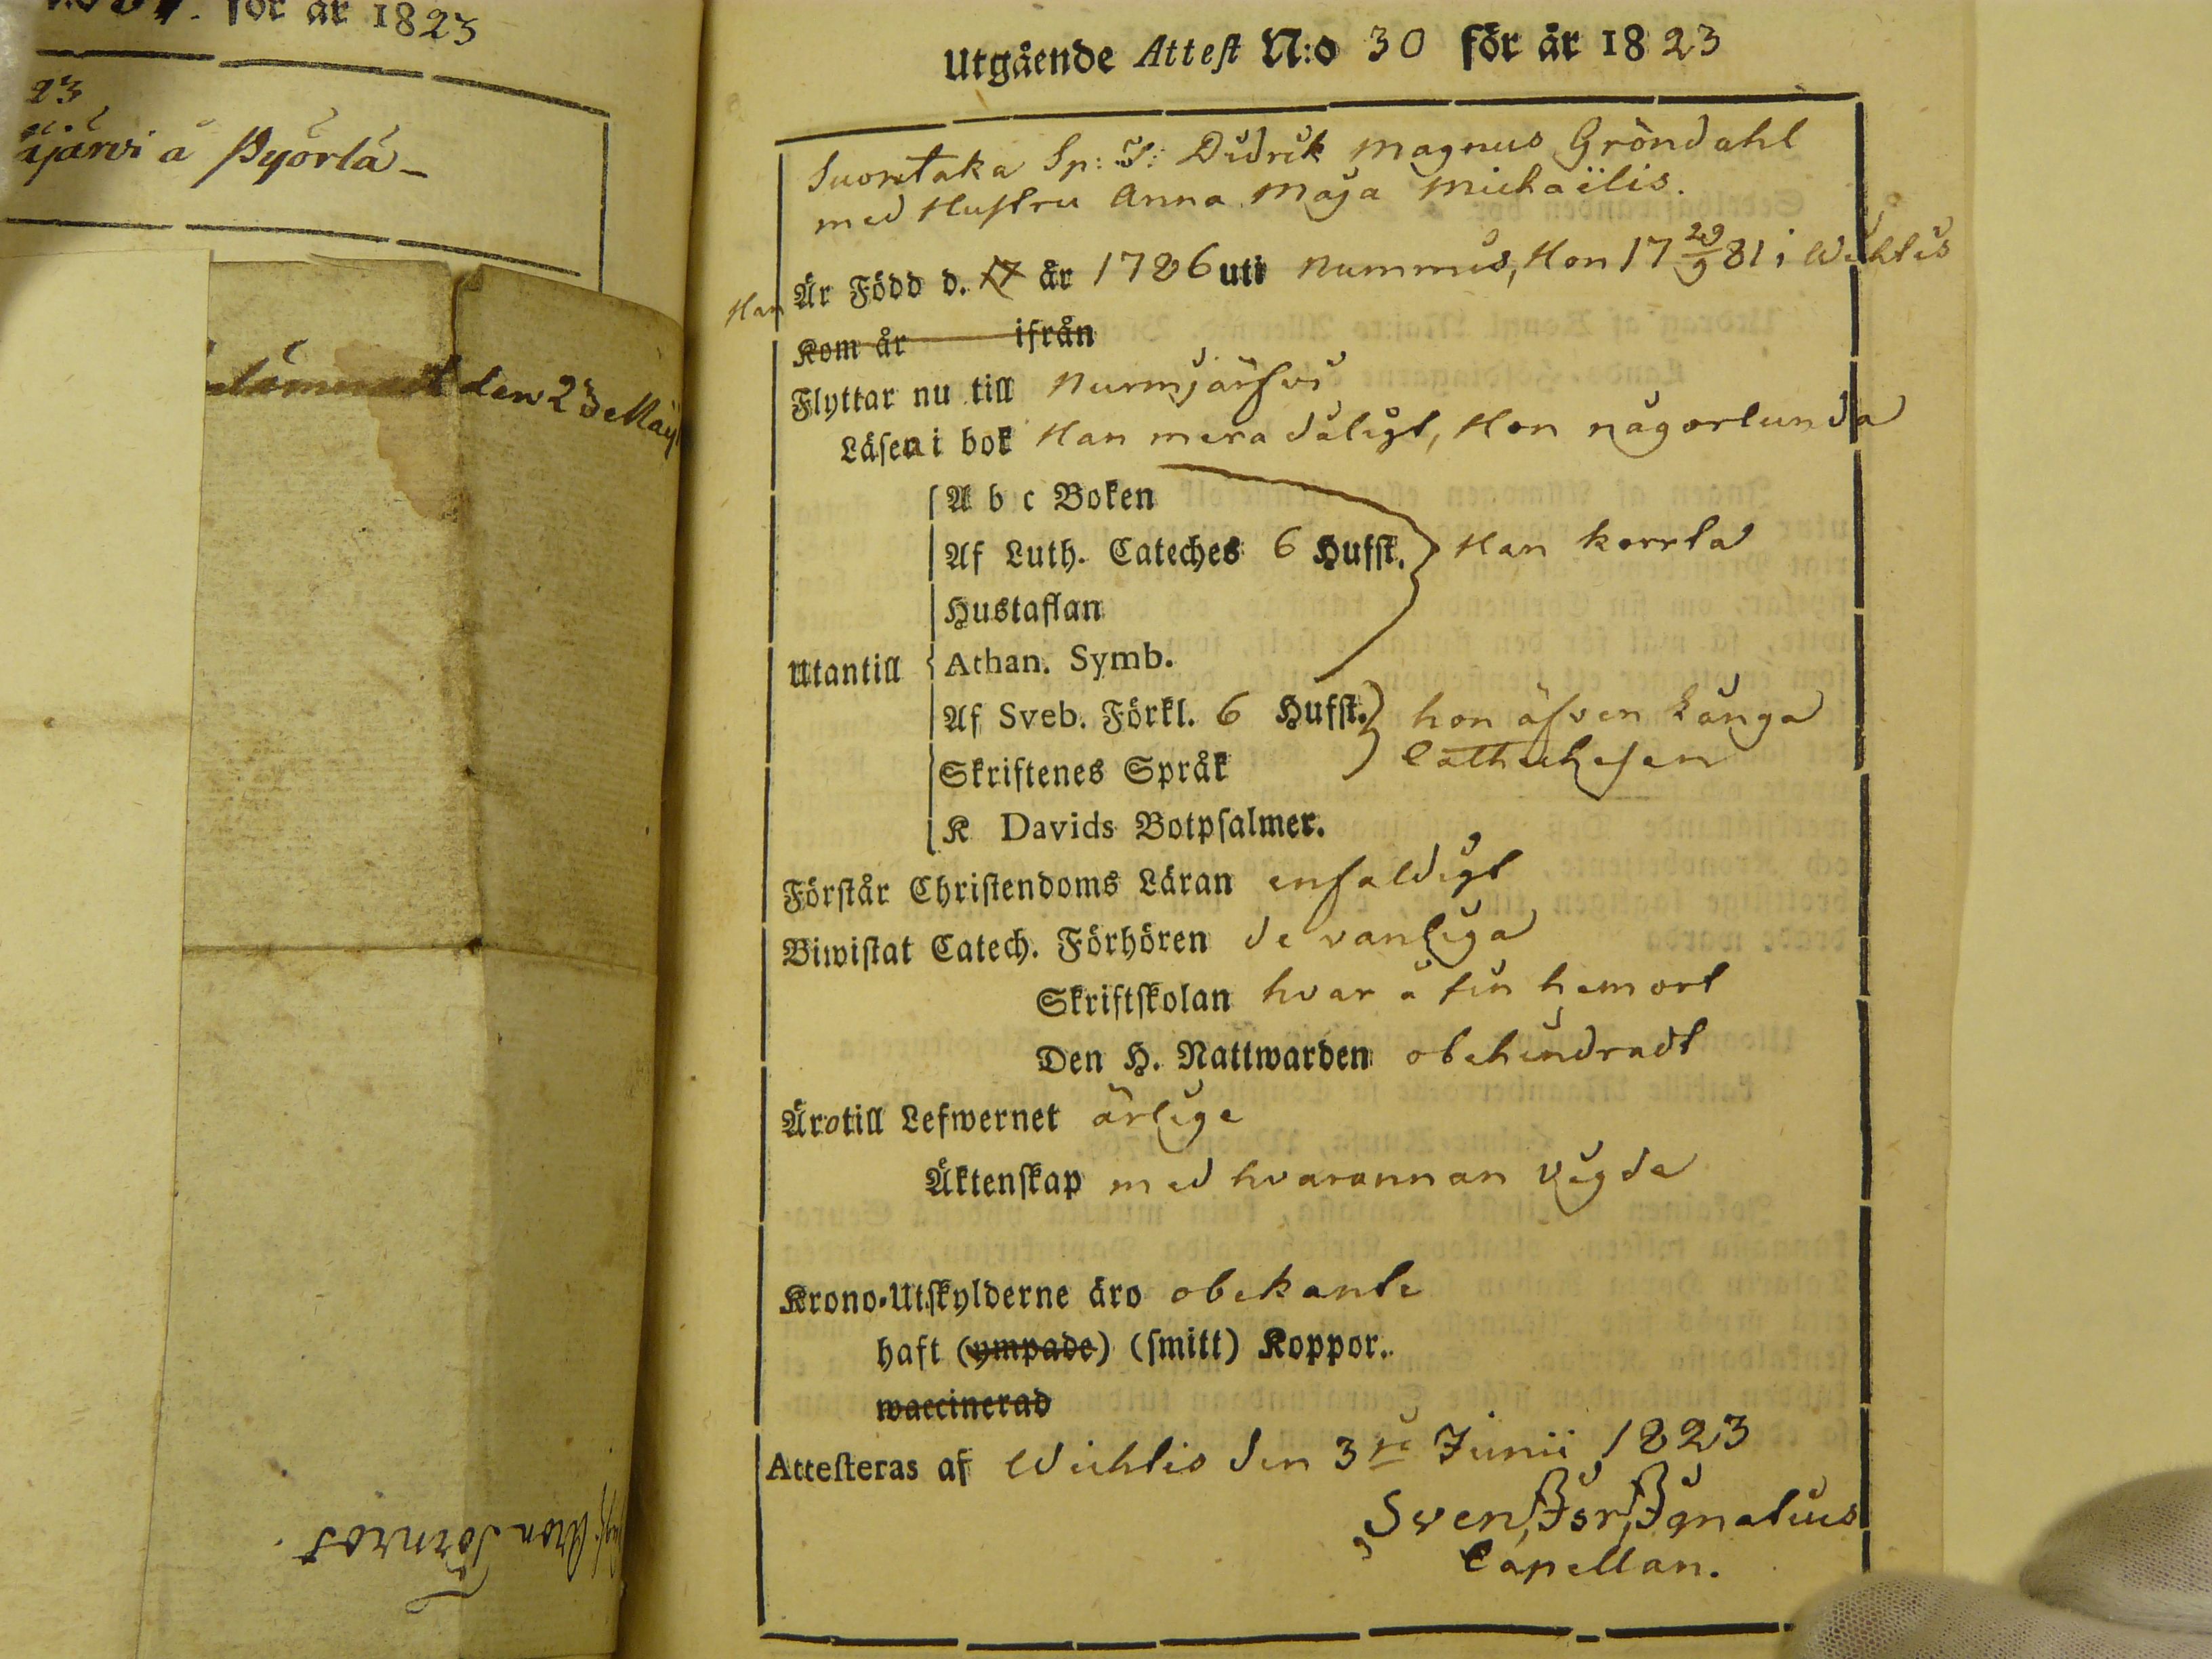 för år 1823
23
järvi å Pyörlä
den 23 Maji
Aron Törnrot.
Utgående Attest N:o 30 för år 1823
Suontaka Sp: S: Didrik Magnus Gröndahl
med Hustru Anna Maja Michaëlis.
Han Är Född d. 17 år 1786 uti Nummis, Hon 17 29/9 81 i Wichtis
Kom år ifrån
Flyttar nu till Nurmjärfvi
Läsen i bok Han mera dåligt, Hon någorlunda
A b c Boken
Af Luth. Cateches 6 Hufst. Han korrta
Hustaflan
Utantill Athan. Symb.
Af Sveb. Förkl. 6 Hufst. hon äfven Långa
Skriftenes Språk Cathechesen
K Davids Botpsalmer.
Förstår Christendoms Läran enfaldigt
Biwistat Catech. Förhören de vanliga
Skriftskolan hvar å sin hemort
Den H. Nattwarden obehindradt
Äro till Lefwernet ärlige
Äktenskap med hvarannan vigde
Krono-Utskylderne äro obekante
haft (ympade) (smitt) Koppor.
waccinerad
Attesteras af Wichtis den 3 Junii 1823
Sven Isr. Ignatius
Capellan.